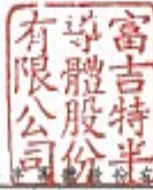 富吉特半
導體股份
有限公司